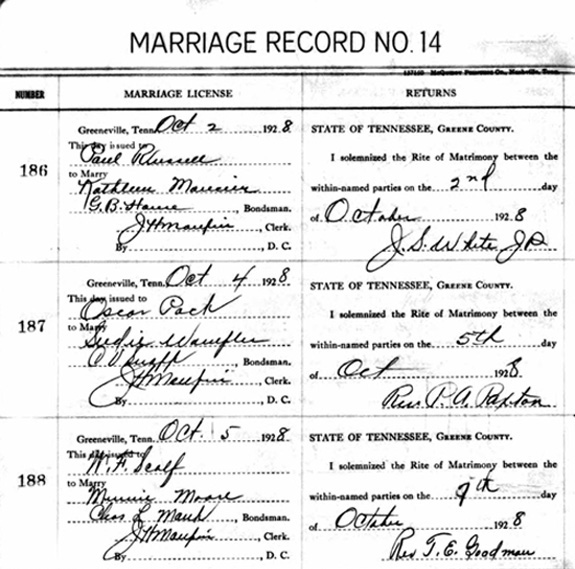 MARRIAGE RECORD NO. 14
NUMBER MARRIAGE LICENSE RETURNS
186
Greeneville, Tenn. Oct 2 1928
This day issued to
Paul Russell
to Marry
Kathleen
G. B. , Bondsman.
J H Maupin , Clerk.
By , D. C.
STATE OF TENNESSEE, GREENE COUNTY.
I solemnized the Rite of Matrimony between the
within-named parties on the 2nd day
of October 1928
J. S. White J P
187
Greeneville, Tenn. Oct 4 1928
This day issued to
Oscar Pack
to Marry
Wampler
Bondsman.
J H Maupin , Clerk.
By , D. C.
STATE OF TENNESSEE, GREENE COUNTY.
I solemnized the Rite of Matrimony between the
within-named parties on the 5th day
of Oct 1928
Rev. P. A. Paxton
188
Greeneville, Tenn. Oct. 5 1928
This day issued to
W. F. Scalf
to Marry
Minnie Moore
Chas L , Bondsman.
J H Maupin , Clerk.
By , D. C.
STATE OF TENNESSEE, GREENE COUNTY.
I solemnized the Rite of Matrimony between the
within-named parties on the 9th day
of October 1928
Rev T. E. Goodman